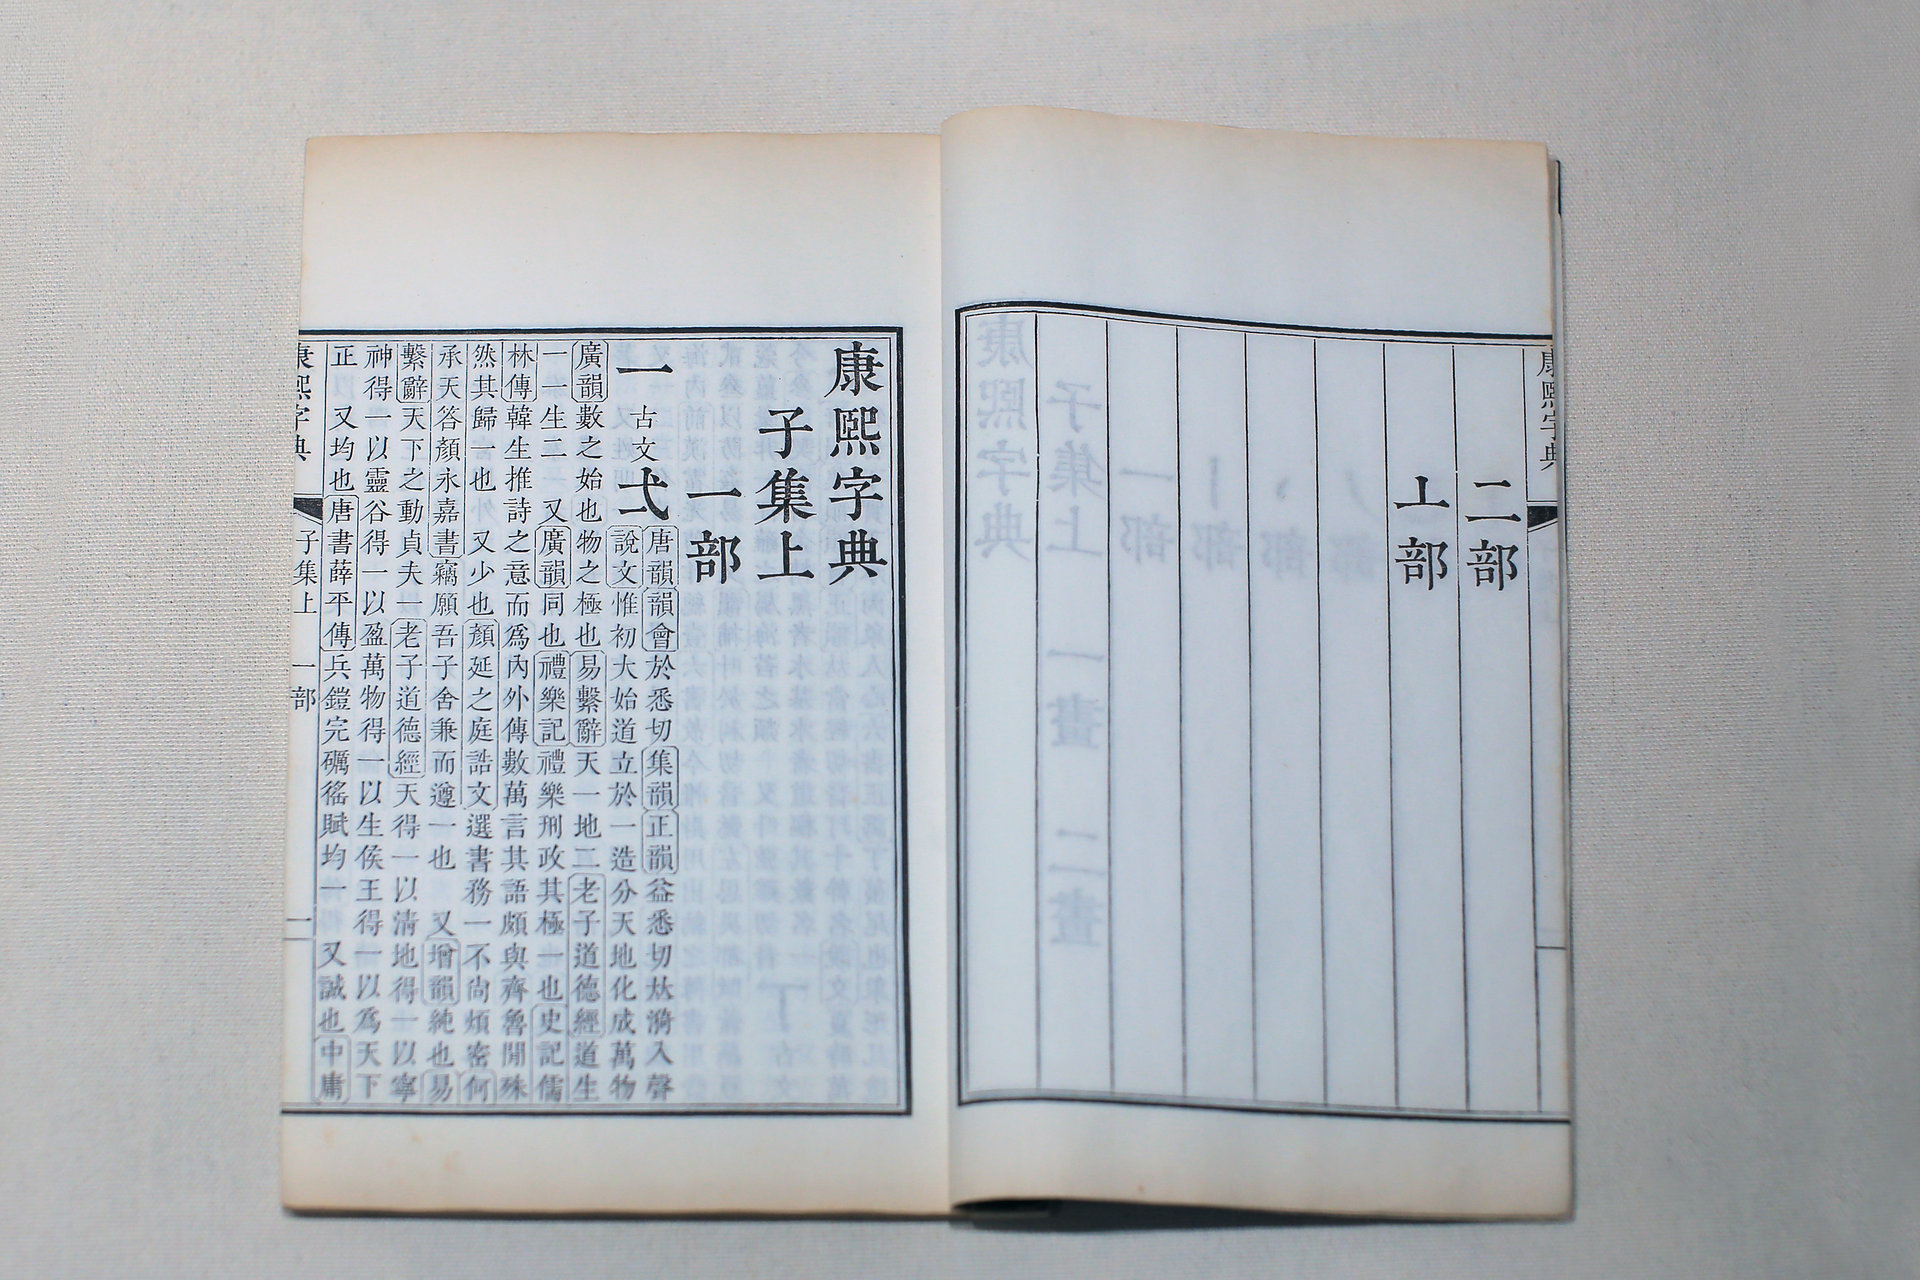 康熙字典
二部
亠部
康熙字典
子集上
一部
一 古文 弌
唐韻韻會於悉切集韻正韻益悉切𠀤漪入聲
說文惟初大始道立於一造分天地化成萬物
廣韻數之始也物之極也易繫辭天一地二老子道德經道生
一一生二 又廣韻同也禮樂記禮樂刑政其極一也史記儒
林傳韓生推詩之意而爲內外傳數萬言其語頗與齊魯閒殊
然其歸一也 又少也顏延之庭誥文選書務一不尙煩密何
承天答顏永嘉書竊願吾子舍兼而遵一也 又增韻純也易
繫辭天下之動貞夫一老子道德經天得一以清地得一以寧
神得一以靈谷得一以盈萬物得一以生侯王得一以爲天下
正 又均也唐書薛平傳兵鎧完礪徭賦均一 又誠也中庸
康熙字典 子集上 一部 一